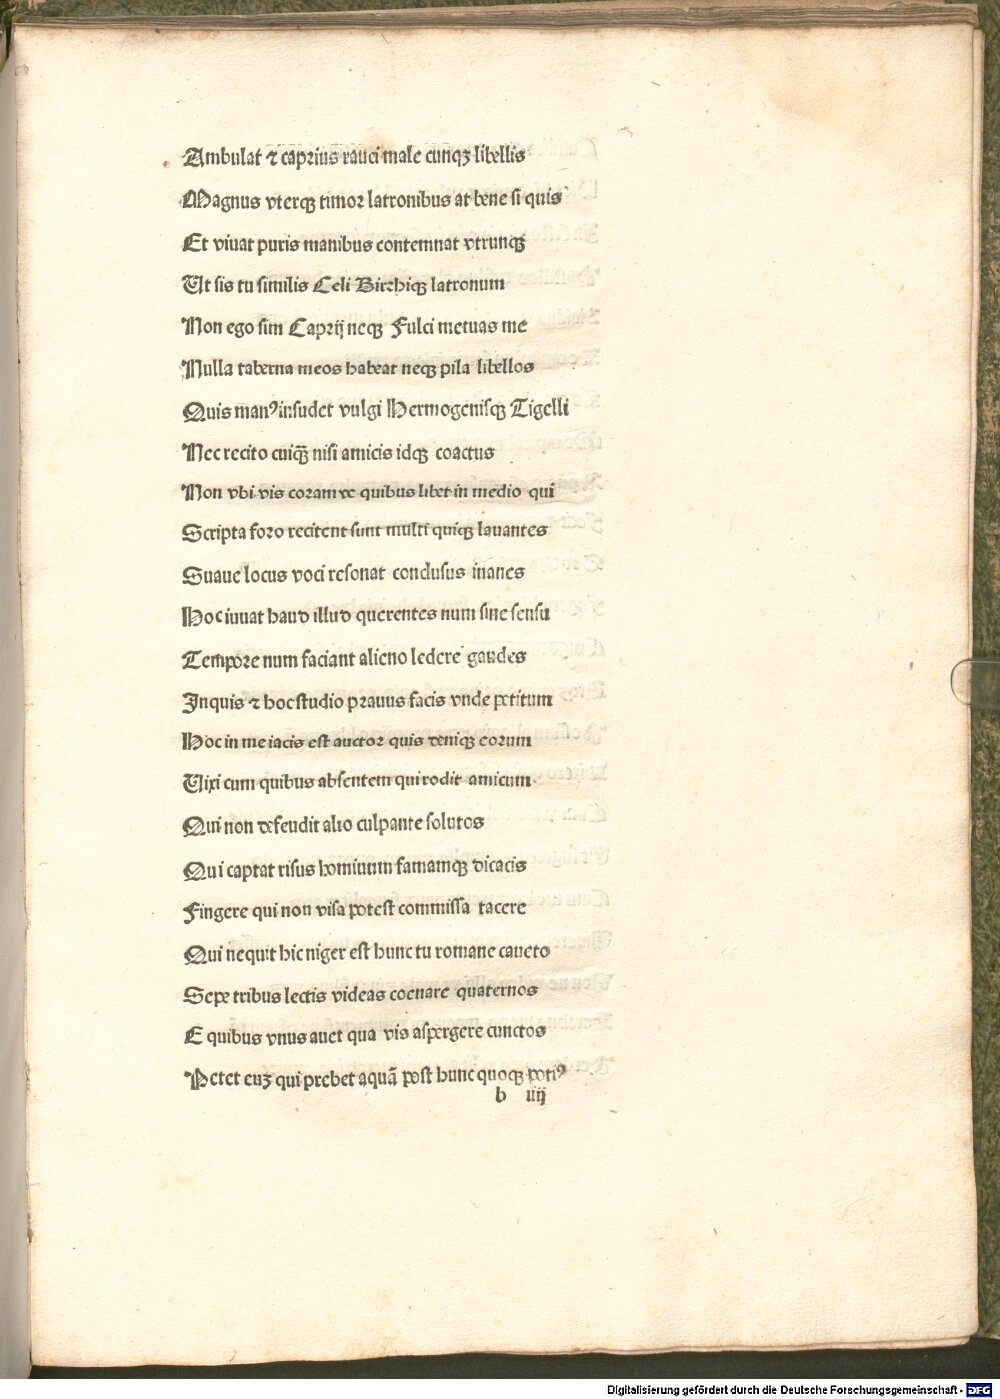 Ambulat ⁊ caprius rauci male cunqꝫ libellis
Magnus vterqꝫ timor latronibus at bene si quis
Et viuat puris manibus contemnat vtrunqꝫ
Ut sis tu similis Celi Birrhiqꝫ latronum
Non ego sim Caprij neqꝫ Fulci metuas me
Nulla taberna meos habeat neqꝫ pila libellos
Quis manꝰ insudet vulgi Hermogenisqꝫ Tigelli
Nec recito cuiqꝫ̃ nisi amicis idqꝫ coactus
Non vbi vis coram ve quibus libet in medio qui
Scripta foro recitent sunt multi quiqꝫ lauantes
Suaue locus voci resonat condusus inanes
Hoc iuuat haud illud querentes num sine sensu
Tempore num faciant alieno ledere gaudes
Inquis ⁊ hoc studio prauus facis vnde petitum
Hoc in me iacis est auctor quis deniqꝫ eorum
Uixi cum quibus absentem qui rodit amicum
Qui non defeudit alio culpante solutos
Qui captat risus homiuum famamqꝫ dicacis
Fingere qui non visa potest commissa tacere
Qui nequit hic niger est hunc tu romane caueto
Sepe tribus lectis videas coenare quaternos
E quibus vnus auet qua vis aspergere cunctos
Petet euꝫ qui prebet aquã post hunc quoqꝫ potꝰ
b iiij
Digitalisierung gefördert durch die Deutsche Forschungsgemeinschaft - DFG